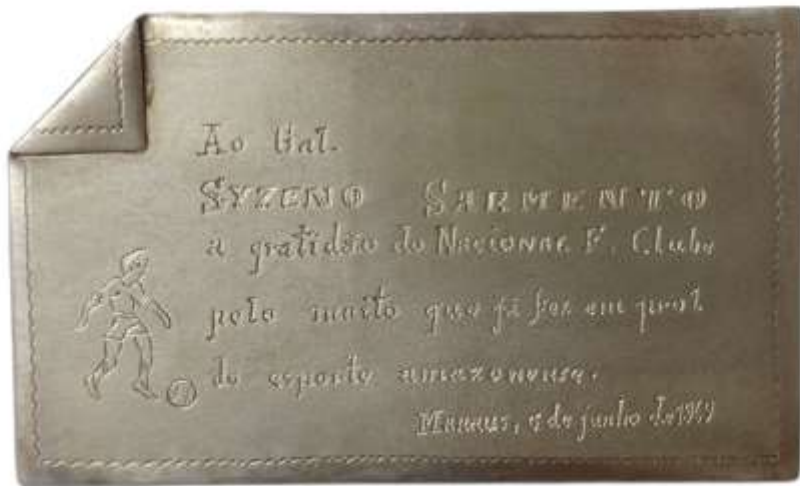 Ao Gal.
SYZENO SARMENTO
a gratidão do NACIONAL F. Clube
pelo muito que já fez em prol
do esporte amazonense.
MANAUS, de junho de 1969